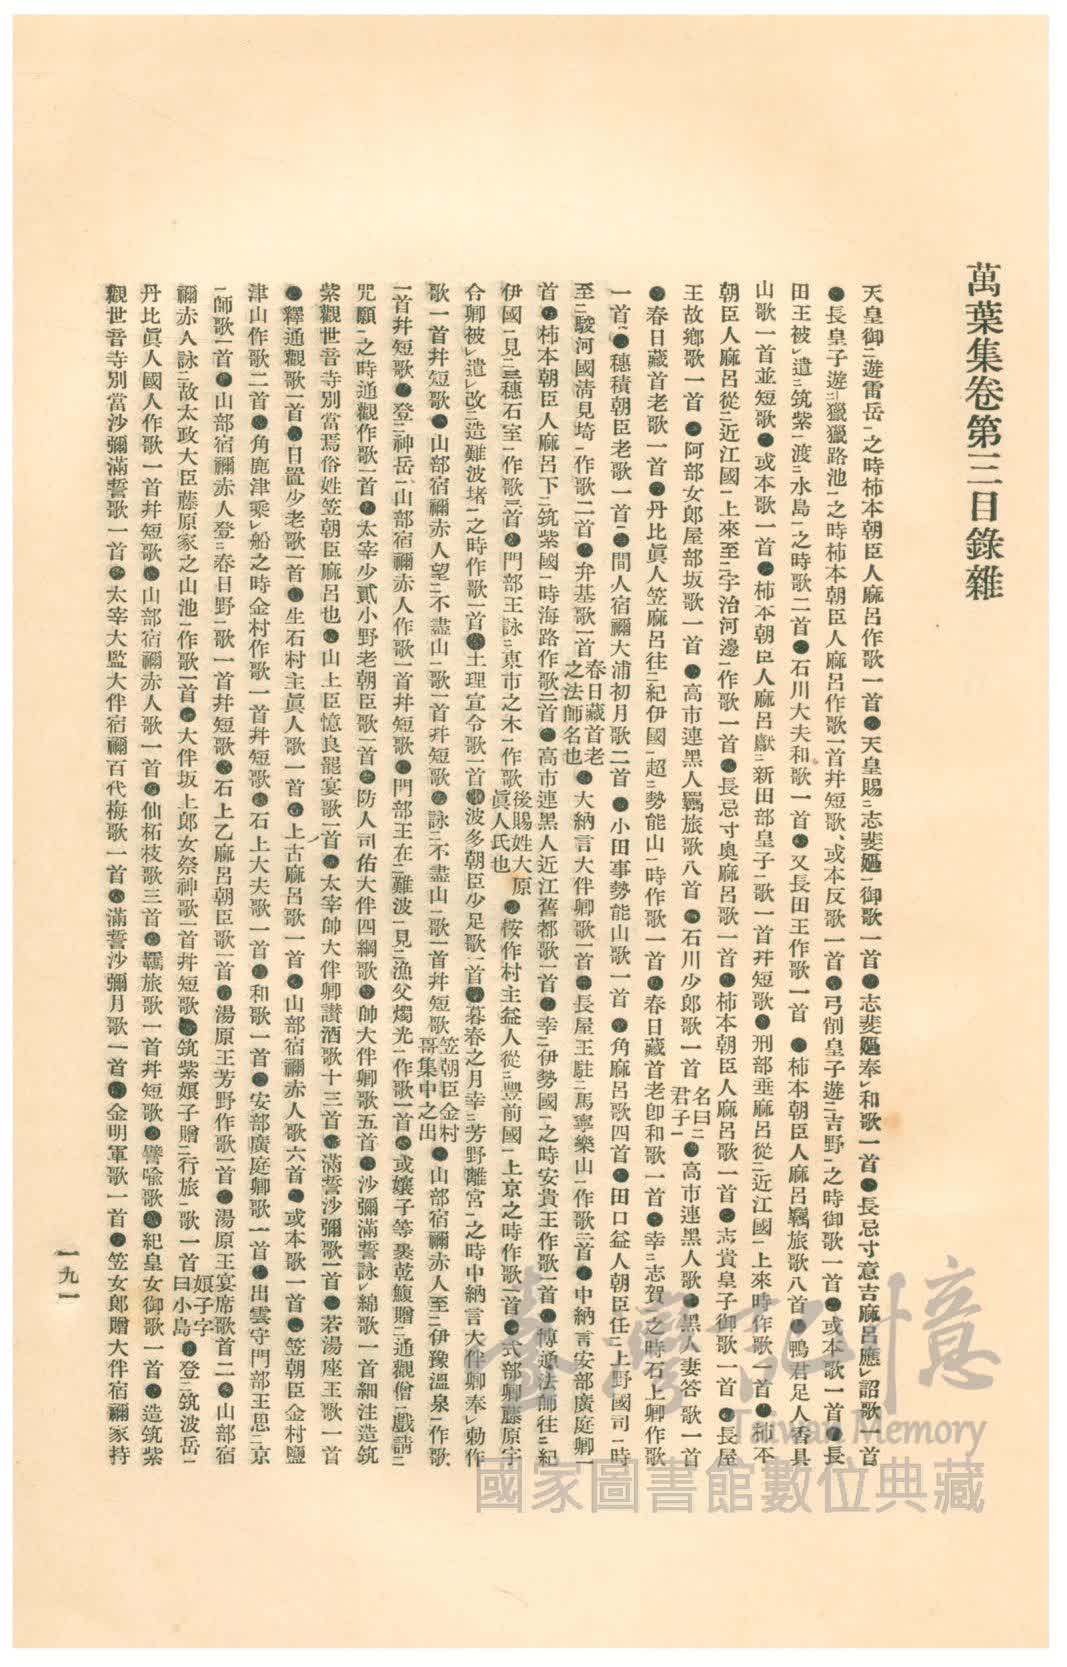 萬葉集卷第三目錄雜
天皇御二遊雷岳一之時柿本朝臣人麻呂作歌一首●天皇賜二志斐嫗一御歌一首●志斐嫗奉レ和歌一首●長忌寸意吉麻呂應レ詔歌一首
●長皇子遊二獵獵路池一之時柿本朝臣人麻呂作歌一首幷短歌、或本反歌一首●弓削皇子遊二吉野一之時御歌一首●或本歌一首●長
田王被レ遣二筑紫一渡二水島一之時歌二首●石川大夫和歌一首●又長田王作歌一首●柿本朝臣人麻呂羈旅歌八首●鴨君足人香具
山歌一首並短歌●或本歌一首●柿本朝臣人麻呂獻二新田部皇子一歌一首幷短歌●刑部垂麻呂從二近江國一上來時作歌一首●柿本
朝臣人麻呂從二近江國一上來至二宇治河邊一作歌一首●長忌寸奧麻呂歌一首●柿本朝臣人麻呂歌一首●志貴皇子御歌一首●長屋
王故鄉歌一首●阿部女郎屋部坂歌一首●高市連黑人羈旅歌八首●石川少郎歌一首名曰二君子一●高市連黑人歌●黑人妻答歌一首
●春日藏首老歌一首●丹比眞人笠麻呂往二紀伊國一超二勢能山一時作歌一首●春日藏首老卽和歌一首●幸二志賀一之時石上卿作歌
一首●穗積朝臣老歌一首●間人宿禰大浦初月歌二首●小田事勢能山歌一首●角麻呂歌四首●田口益人朝臣任二上野國司一時
至二駿河國淸見埼一作歌二首●弁基歌一首春日藏首老之法師名也●大納言大伴卿歌一首●長屋王駐二馬寧樂山一作歌二首●中納言安部廣庭卿一
首●柿本朝臣人麻呂下二筑紫國一時海路作歌二首●高市連黑人近江舊都歌一首●幸二伊勢國一之時安貴王作歌一首●博通法師往二紀
伊國一見二三穗石室一作歌三首●門部王詠二東市之木一作歌後賜姓大原眞人氏也●桉作村主益人從二豐前國一上京之時作歌一首●式部卿藤原宇
合卿被レ遣レ改二造難波堵一之時作歌一首●土理宣令歌一首●波多朝臣少足歌一首●暮春之月幸二芳野離宮一之時中納言大伴卿奉レ勅作
歌一首幷短歌●山部宿禰赤人望二不盡山一歌一首幷短歌●詠二不盡山一歌一首幷短歌笠朝臣金村哥集中之出●山部宿禰赤人至二伊豫溫泉一作歌
一首幷短歌●登二神岳一山部宿禰赤人作歌一首幷短歌●門部王在二難波一見二漁父燭光一作歌一首●或孃子等褁乾鰒贈二通觀僧一戲請二
咒願一之時通觀作歌一首●太宰少貳小野老朝臣歌一首●防人司佑大伴四綱歌●帥大伴卿歌五首●沙彌滿誓詠レ綿歌一首細注造筑
紫觀世音寺別當焉俗姓笠朝臣麻呂也●山上臣憶良罷宴歌一首●太宰帥大伴卿讃酒歌十三首●滿誓沙彌歌一首●若湯座王歌一首
●釋通觀歌一首●日置少老歌一首●生石村主眞人歌一首●上古麻呂歌一首●山部宿禰赤人歌六首●或本歌一首●笠朝臣金村鹽
津山作歌二首●角鹿津乘レ船之時金村作歌一首幷短歌●石上大夫歌一首●和歌一首●安部廣庭卿歌一首●出雲守門部王思二京
一師歌一首●山部宿禰赤人登二春日野一歌一首幷短歌●石上乙麻呂朝臣歌一首●湯原王芳野作歌一首●湯原王宴席歌首二●山部宿
禰赤人詠二故太政大臣藤原家之山池一作歌一首●大伴坂上郎女祭神歌一首幷短歌●筑紫娘子贈二行旅一歌一首娘子字曰小島●登二筑波岳一
丹比眞人國人作歌一首幷短歌●山部宿禰赤人歌一首●仙柘枝歌三首●羈旅歌一首幷短歌●譬喩歌●紀皇女御歌一首●造筑紫
觀世音寺別當沙彌滿誓歌一首●太宰大監大伴宿禰百代梅歌一首●滿誓沙彌月歌一首●金明軍歌一首●笠女郎贈大伴宿禰家持
一九一
臺灣記憶
Taiwan Memory
國家圖書館數位典藏